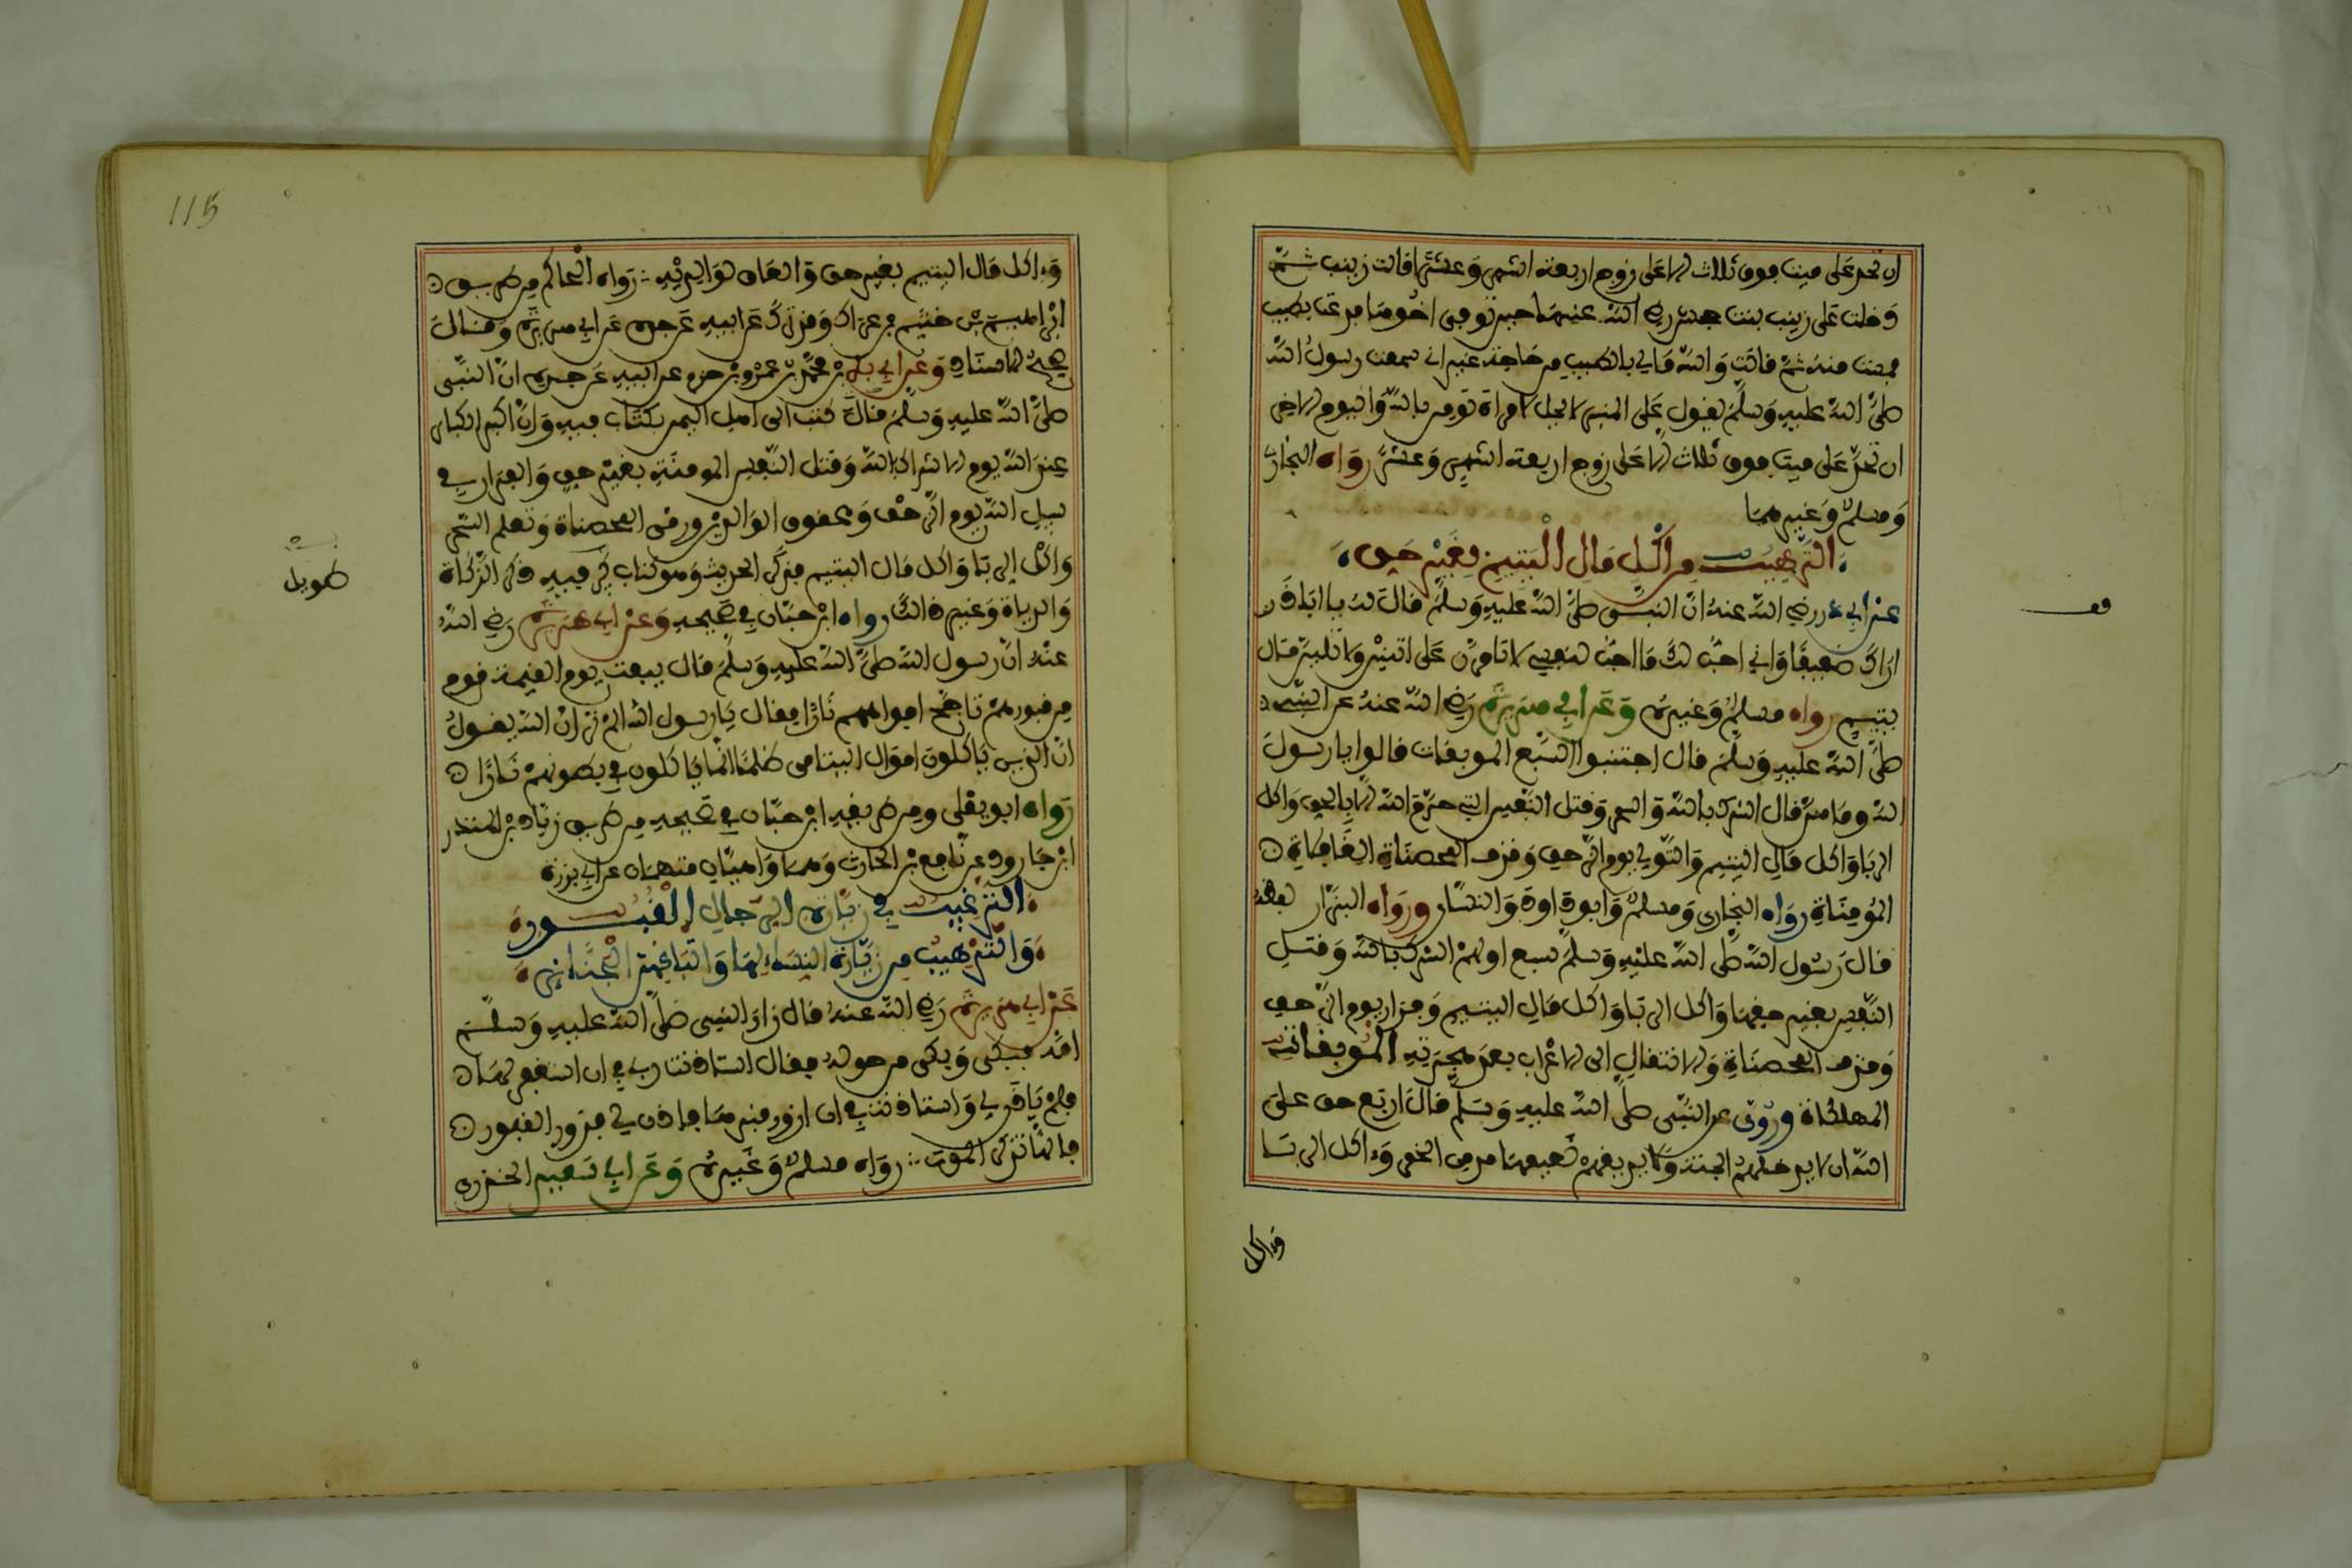 ان تحد على ميت فوق ثلاث الا على زوج اربعة اشهر وعشرا قالت زينب ثم
دخلت على زينب بنت جحش رضي الله عنها حين توفي اخوها فدعت بطيب
فمست منه ثم قالت والله مالي بالطيب من حاجة غير اني سمعت رسول الله
صلى الله عليه وسلم يقول على المنبر لا يحل لامراة تومن بالله واليوم الاخر
ان تحد على ميت فوق ثلاث الا على زوج اربعة اشهر وعشرا رواه البخاري
ومسلم وغيرهما
الترهيب من اكل مال اليتيم بغير حق
عن ابي ذر رضي الله عنه ان النبي صلى الله عليه وسلم قال له يا اباذر
اراك ضعيفا واني احب لك ما احب لنفسي لا تامرن على اثنين ولا تلين مال
يتيم رواه مسلم وغيره وعن ابي هريرة رضي الله عنه عن النبي
صلى الله عليه وسلم قال اجتنبوا السبع الموبقات قالوا يا رسول
الله وما هن قال الشرك بالله والسحر وقتل النفس التي حرم الله الا بالحق واكل
الربا واكل مال اليتيم والتولي يوم الزحف وقذف المحصناة الغافلاة
المومناة رواه البخاري ومسلم وابوداود والنساي ورواه البزار لفظه
قال رسول الله صلى الله عليه وسلم سبع اولهن الشرك بالله وقتل
النفس بغير حقها واكل الربا واكل مال اليتيم وفرار يوم الزحف
وقذف المحصناة والانتقال الى الاعراب بعد هجرته الموبقات
المهلكاة وروي عن النبي صلى الله عليه وسلم قال اربع حق على
الله ان لا يدخلهم الجنة ولا يذيقهم نعيمها مدمن الخمر وءاكل الربا
وءاكل
وءاكل مال اليتيم بغير حق والعاق لوالديه رواه الحاكم من طريق
ابراهيم بن خثيم بن عراك وقد ترك عن ابيه عن جده عن ابي هريرة وقال
صحيح الاسناد وعن ابي بكر بن محمد بن عمرو بن حزم عن ابيه عن جده ان النبي
صلى الله عليه وسلم قال كتب الى اهل اليمن بكتاب فيه وان اكبر الكباير
عند الله يوم الاشراك بالله وقتل النفس المومنة بغير حق والفرار في
سبيل الله يوم الزحف وعقوق الوالدين ورمي المحصناة وتعلم السحر
واكل الربا واكل مال اليتيم فذكر الحديث وهو كتاب كبير فيه ذكر الزكاة
والدياة وغير ذالك رواه ابن حبان في صحيحه وعن ابي هريرة رضي الله
طويل
عنه ان رسول الله صلى الله عليه وسلم قال يبعث يوم القيمة قوم
من قبورهم تاجج افواههم نارا فقال يا رسول الله الم تر ان الله يقول
ان الذين ياكلون اموال اليتامى ظلما انما ياكلون في بطونهم نارا
رواه ابو يعلى ومن طريقه ابن حبان في صحيحه من طريق زياد بن المنذر
ابن جارود عن نافع بن الحارث وهما واهيان متهمان عن ابي برزة
الترغيب في زيارة الرجال القبور
والترهيب من زيارة النساء لها واتباعهن الجنايز
عن ابي هريرة رضي الله عنه قال زار النبي صلى الله عليه وسلم
امه فبكى وبكى من حوله فقال استاذنت ربي في ان استغفر لها
فلم ياذن لي واستاذنته في ان ازور قبرها فاذن لي فزوروا القبور
فانها تذكر الموت رواه مسلم وغيره وعن ابي سعيد الخدري
115